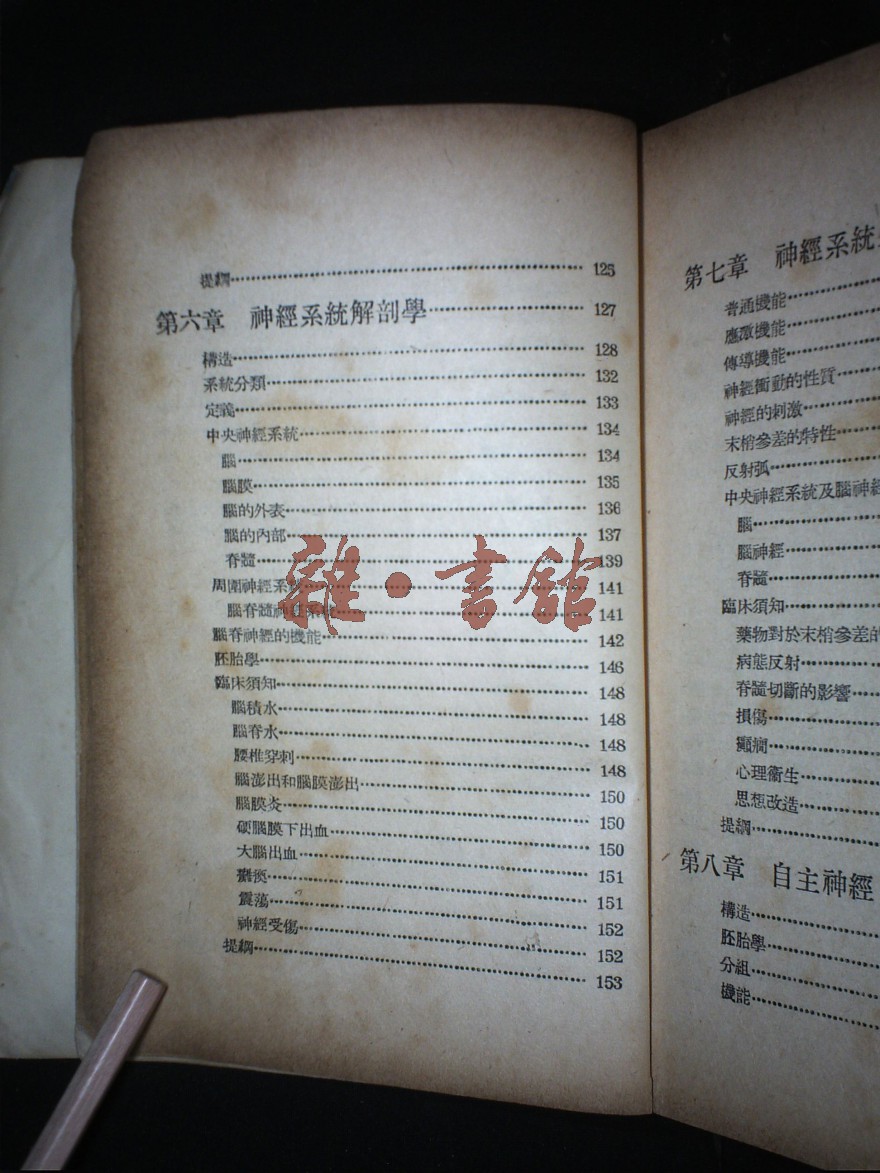 提綱 125
第六章 神經系統解剖學 127
構造 128
系統分類 132
定義 133
中央神經系統 134
腦 134
腦膜 135
腦的外表 136
腦的內部 137
脊髓 139
周圍神經系統 141
腦脊髓神經系統 141
腦脊神經的機能 142
胚胎學 146
臨床須知 148
腦積水 148
腦脊水 148
腰椎穿刺 148
腦澎出和腦膜澎出 150
腦膜炎 150
硬腦膜下出血 150
大腦出血 151
癱瘓 151
震蕩 152
神經受傷 152
提綱 153
雜·書館
第七章 神經系統
普通機能
應激機能
傳導機能
神經衝動的性質
神經的刺激
末梢參差的特性
反射弧
中央神經系統及腦神經
腦
腦神經
脊髓
臨床須知
藥物對於末梢參差的
病態反射
脊髓切斷的影響
損傷
癲癇
心理衛生
思想改造
提綱
第八章 自主神經
構造
胚胎學
分組
機能